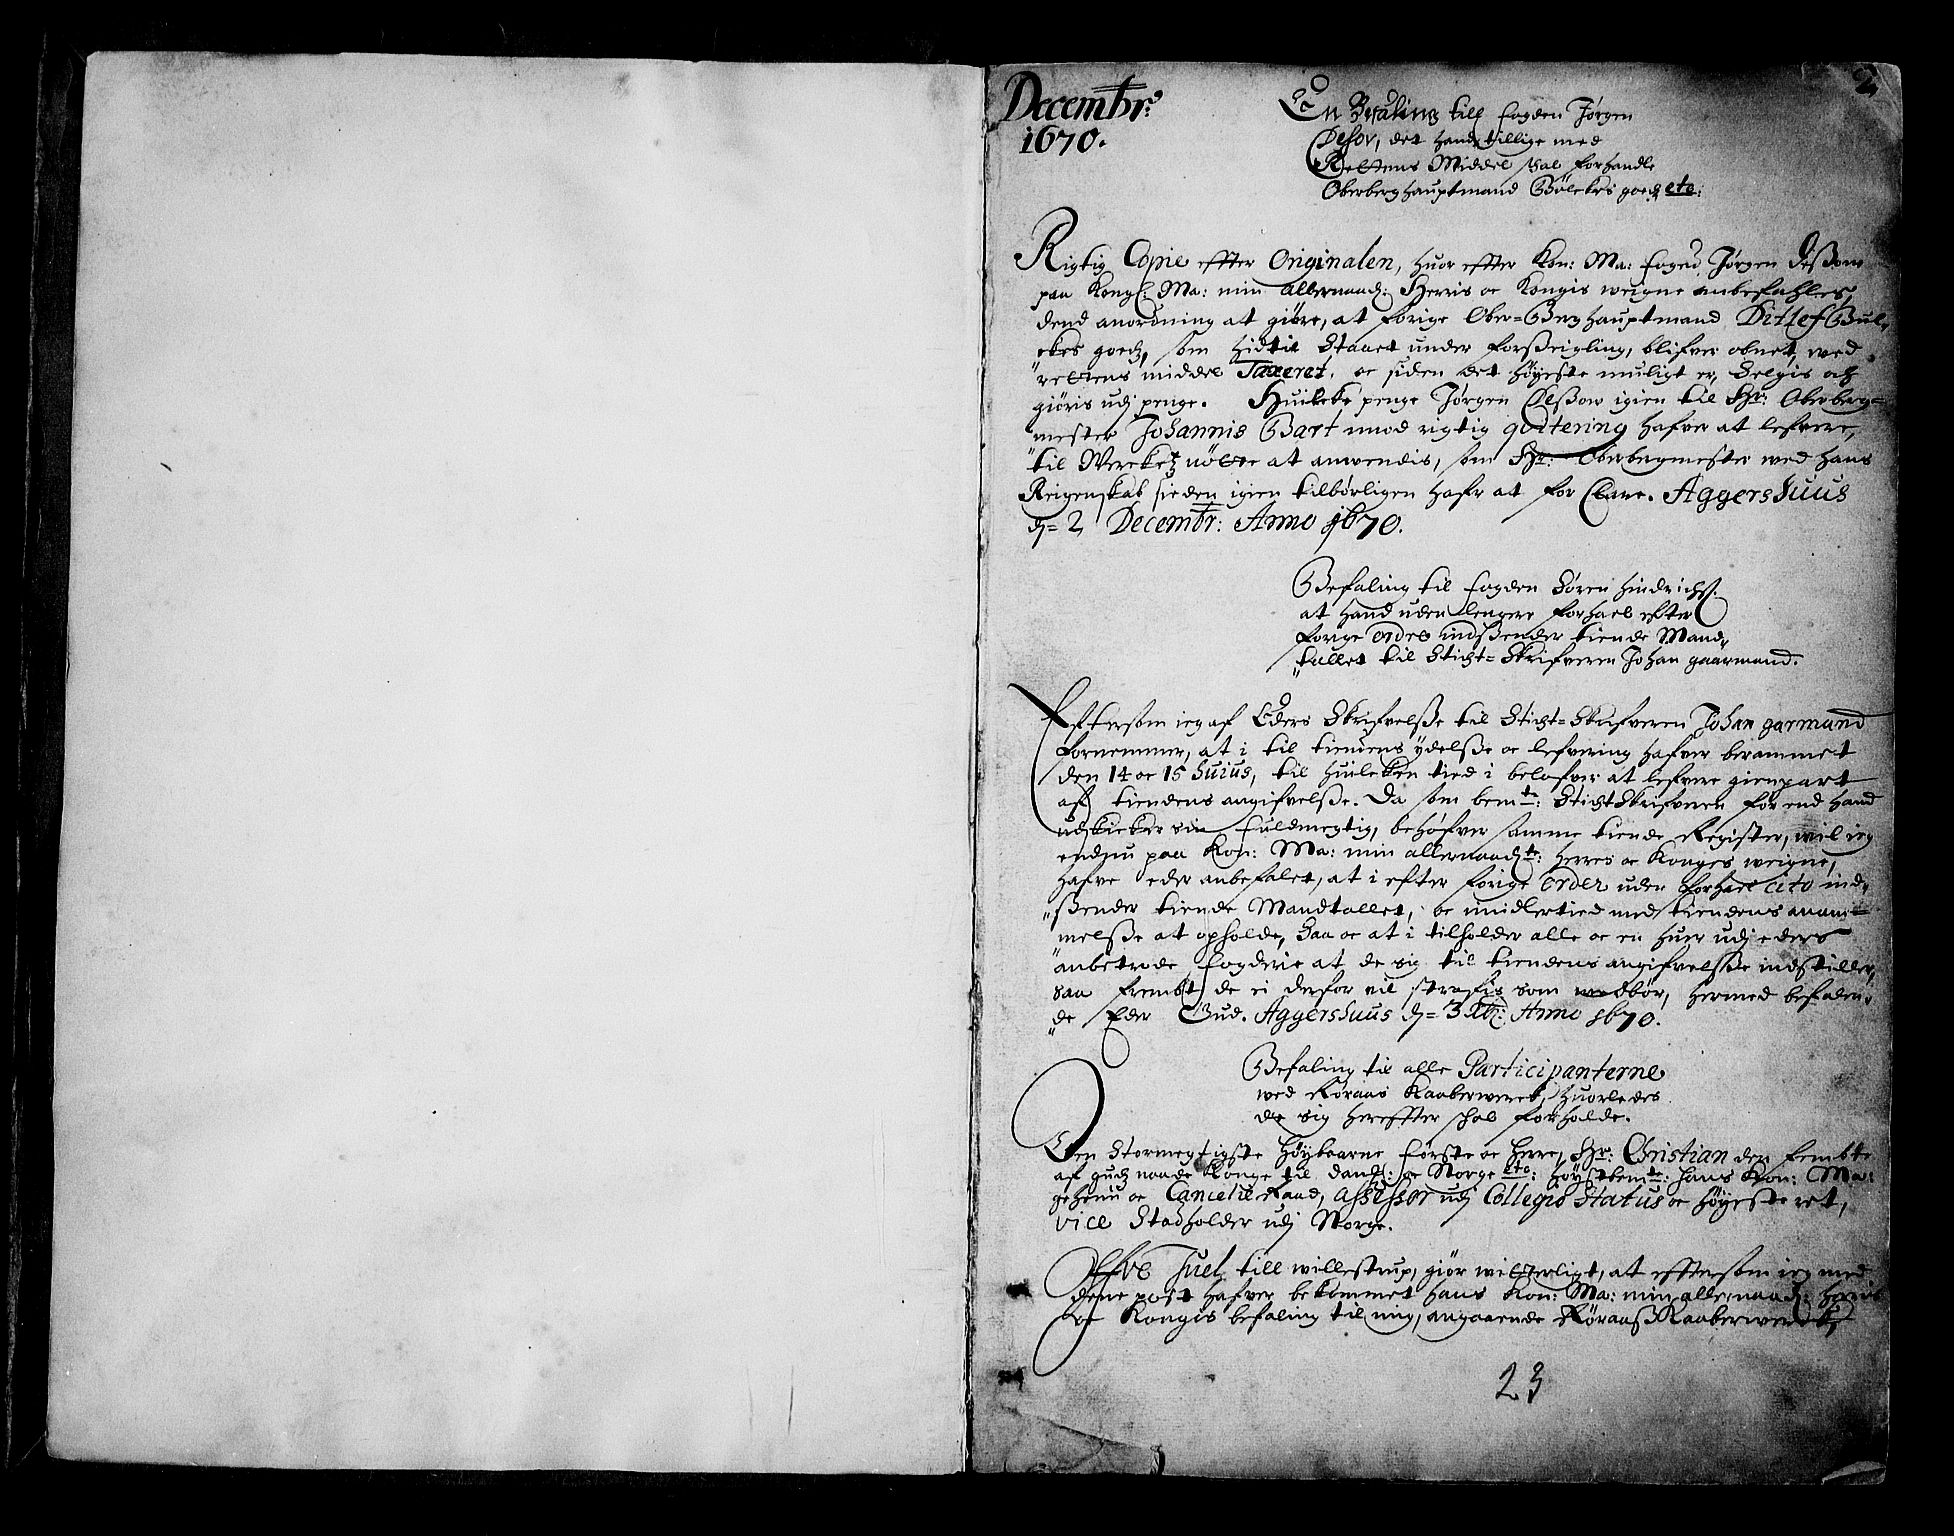 2
Decembr:
1670.
En Befaling till fogden Jørgen
det hand tillige med
Rettens Middel skal forhandle
Oberberghauptmand Bölckes goedz etc:
Rigtig Copie effter Originalen, huor effter Kon: Ma: foged Jørgen
paa Kongl: Ma: min allernaad: Herris oc Kongis weigne anbefahles,
dend anordning at giöre, at forige Ober=Berghauptmand Ditlef Bül,
ckes goedz, som hidtil Staaet under forseigling, blifver obnet, med
rettens middel Taxeret, oc siden det høyeste muligt er, Selgis och
giöris udj penge. Huilcke penge Jørgen igien til Hr: Oberberg=
mester Johannis Bart imod rigtig qvitering hafver at lefvere,
til Werckets nötte at anwendis, som Hr: Oberbergmester med hans
Reigenskab sieden igien tilbörligen hafr at for Clare. Aggershuus
dj= 2 Decembr: Anno 1670.
Befaling til fogden Sören Hindrichs.
at hand uden lengere forhael efter
forige ordes indsender tiende Mand,
tallet til Sticht=Skrifveren Johan gaarmand.
Eftersom ieg af Eders Skrifvelse til Sticht=Skrifveren Johan garmand
fornemmer, at i til tiendens ydelse oc lefvering hafver berammet
den 14 oc 15 huius, til huilcken tied i belofver at lefvere gienpart
af tiendens angifvelse. Da som bemte: StichtSkrifveren for end hand
udskicker sin fuldmegtig, behöfver samme tiende Register, wil ieg
endnu paa Kon: Ma: min allernaadste: Herres oc Konges weigne,
hafve eder anbefalet, at i efter forige order uden forhael cito ind,
sender tiende Mandtallet, oc imidlertied med tiendens annam=
melse at opholde, Saa oc at i tilholder alle oc en huer udj eders
anbetrode fogderie at de sig til tiendens angifvelse indstiller,
saa fremt de ei derfor vil straffis som wedbör, hermed befalen,
de Eder Gud. Aggershuus dj= 3 Xbr: Anno 1670.
Befaling til alle Participanterne
wed Röraas Kaaberwerck, huorledes
de sig hereffter skal forholde.
Den Stormegtigste Höybaarne förste oc Herre, Hr: Christian den femte
af gudz naade Konge til Danm: oc Norge etc: Höystbemte: hans Kon: Ma:
geheim oc Cancelie Raad, Assessor udj Collegio Status oc höyeste ret,
vice Stadholder udj Norge.
Offve Juel till willestrup, giör witterligt, at effter som ieg med
denne post hafver bekommet hans Kon: Ma: min allernaad: Herris
oc Kongis befaling til mig, angaaende Röraas Kaaberwerck,
23